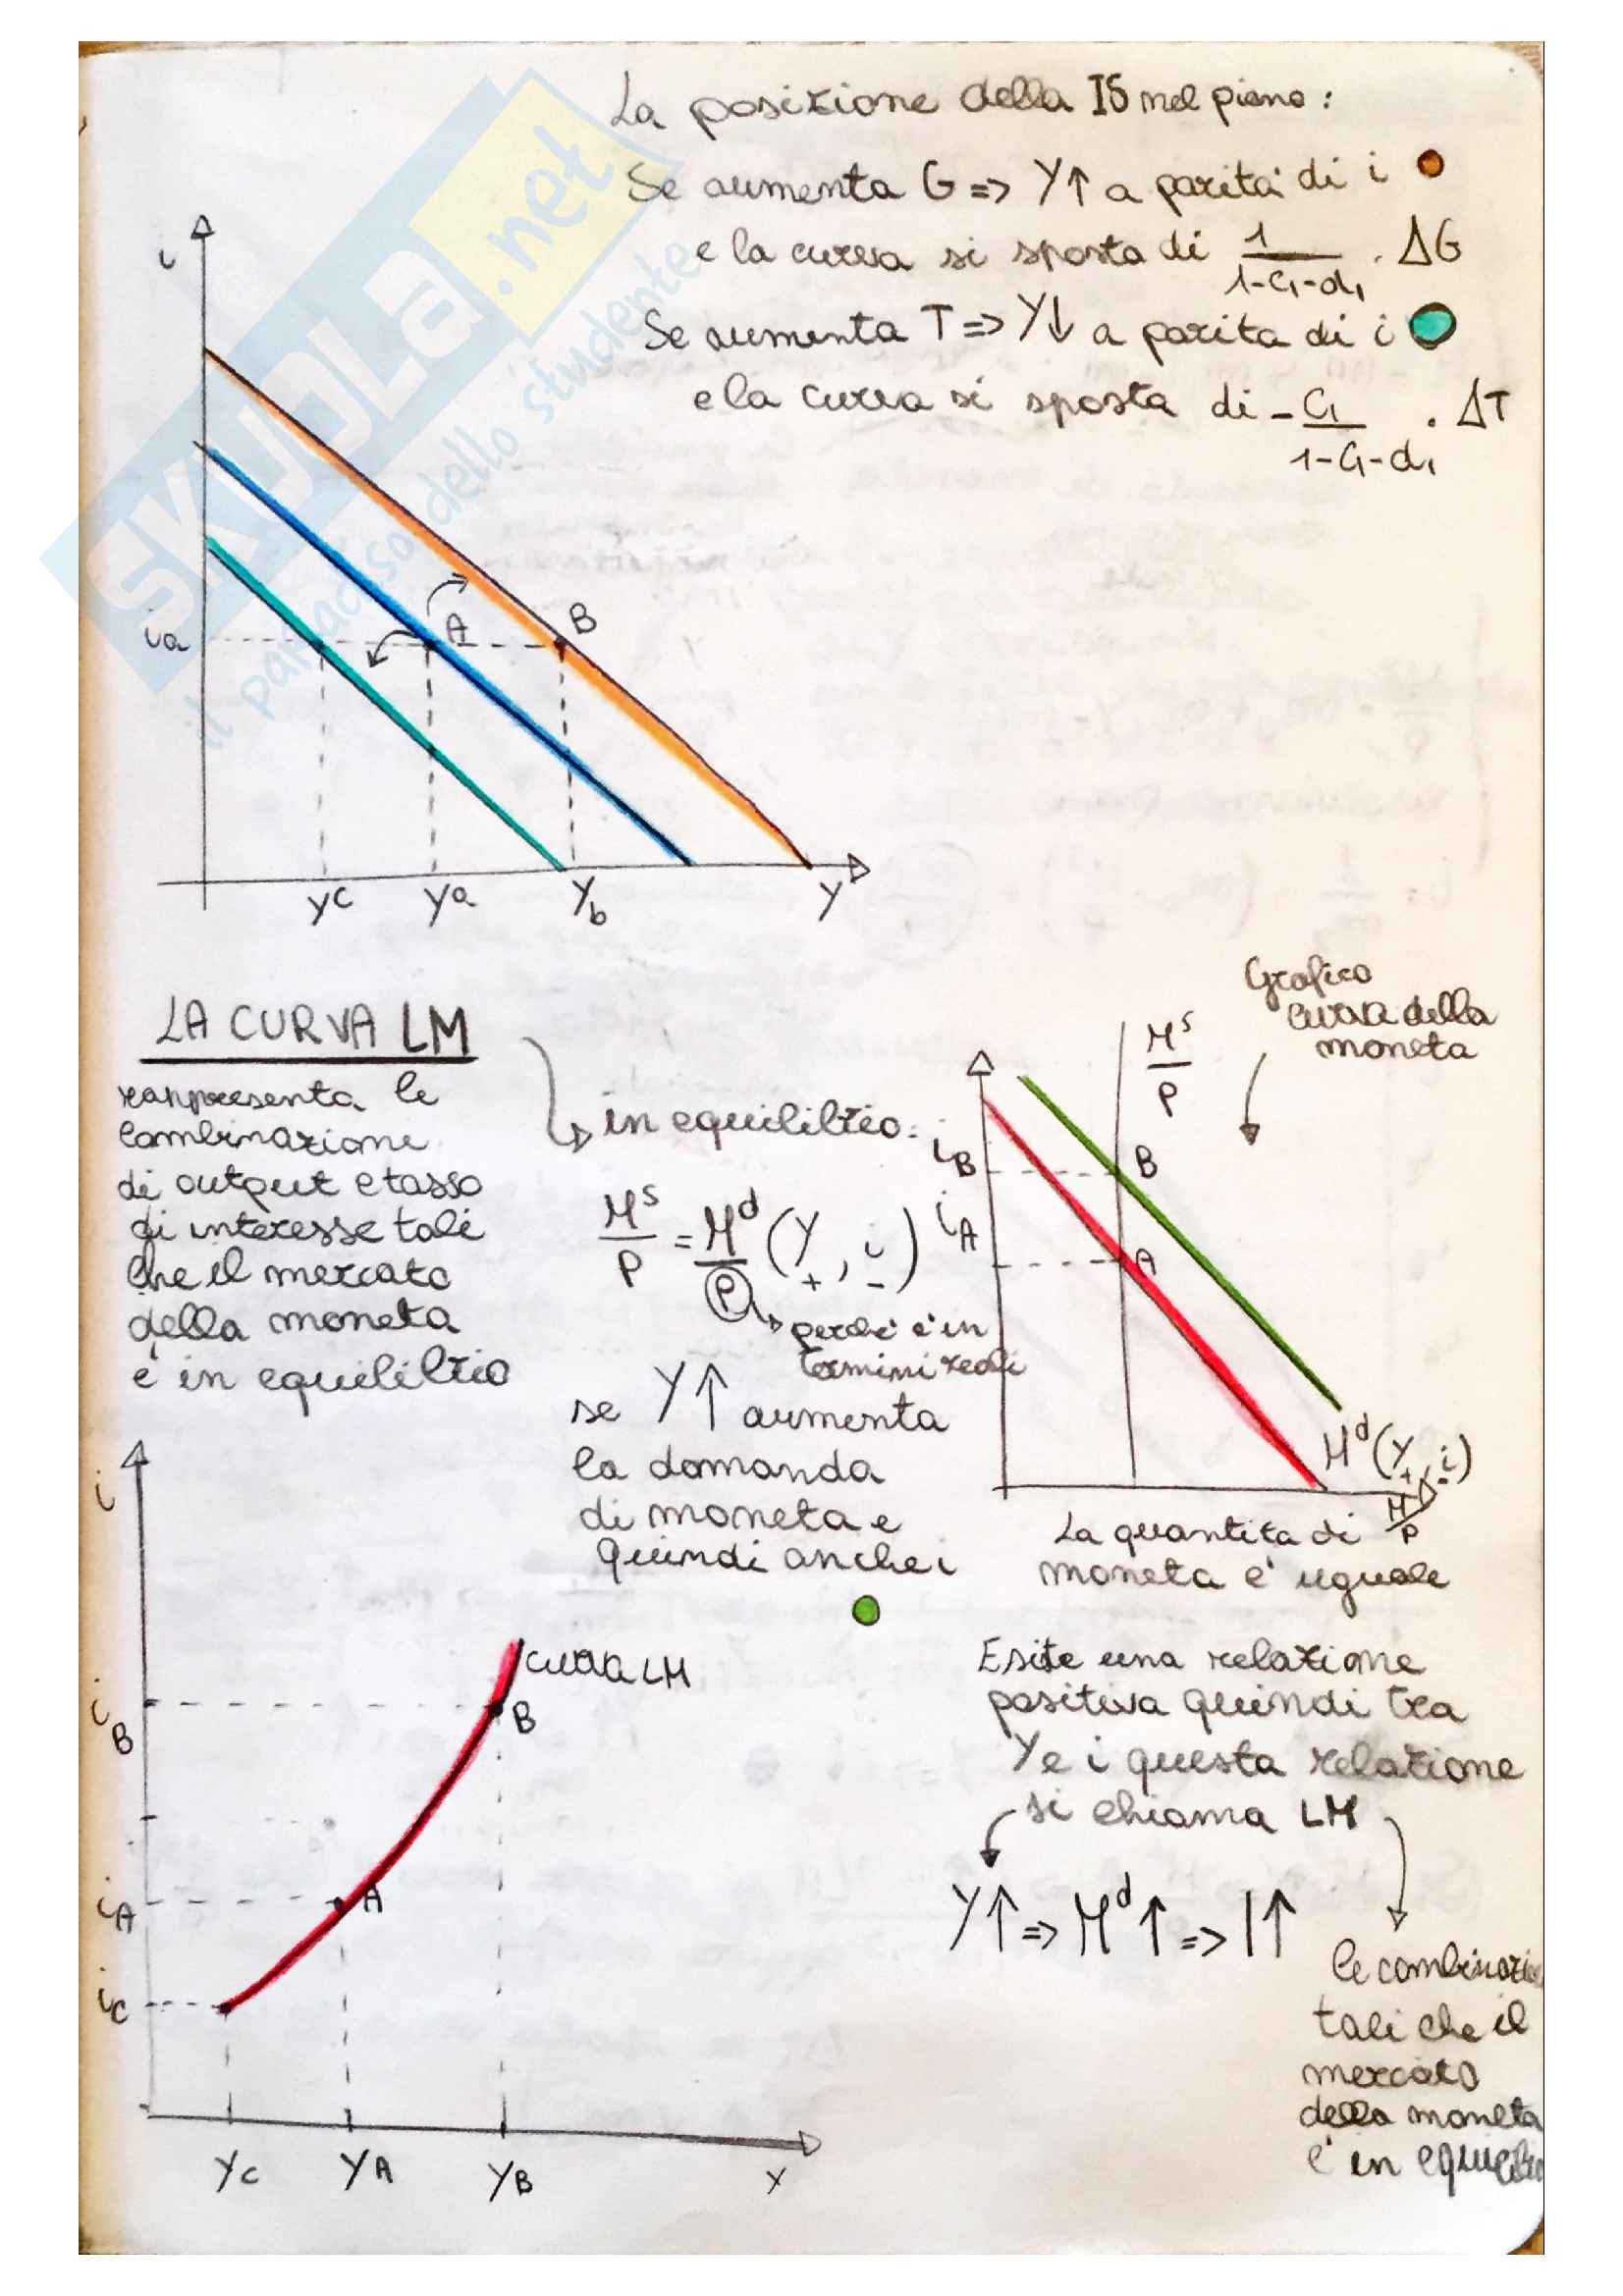 La posizione della IS nel piano:
Se aumenta G => Y↑ a parità di i
e la curva si sposta di 1/(1-C₁-d₁) · ΔG
Se aumenta T => Y↓ a parita di i
e la curva si sposta di - C₁/(1-C₁-d₁) · ΔT
SKUOLA.net
il paradiso dello studente
i
ia
A
B
YC
Ya
Yb
Y
LA CURVA LM
rappresenta le
combinazione
di output e tasso
di interesse tali
che il mercato
della moneta
e' in equilibrio
in equilibrio:
Mˢ/P = Mᵈ/P (Y, i)
+ -
perche' e' in
termini reali
se Y↑ aumenta
la domanda
di moneta e
quindi anche i
Grafico
curva della
moneta
Mˢ/P
iB
B
iA
A
Mᵈ(Y, i)
+ -
M/P
La quantita di
moneta e' uguale
i
curva LM
iB
B
iA
A
iC
YC
YA
YB
Esite una relazione
positiva quindi tra
Y e i questa relazione
si chiama LM
Y↑ => Mᵈ↑ => I↑
le combinazio
tali che il
mercato
della moneta
e' in equilib